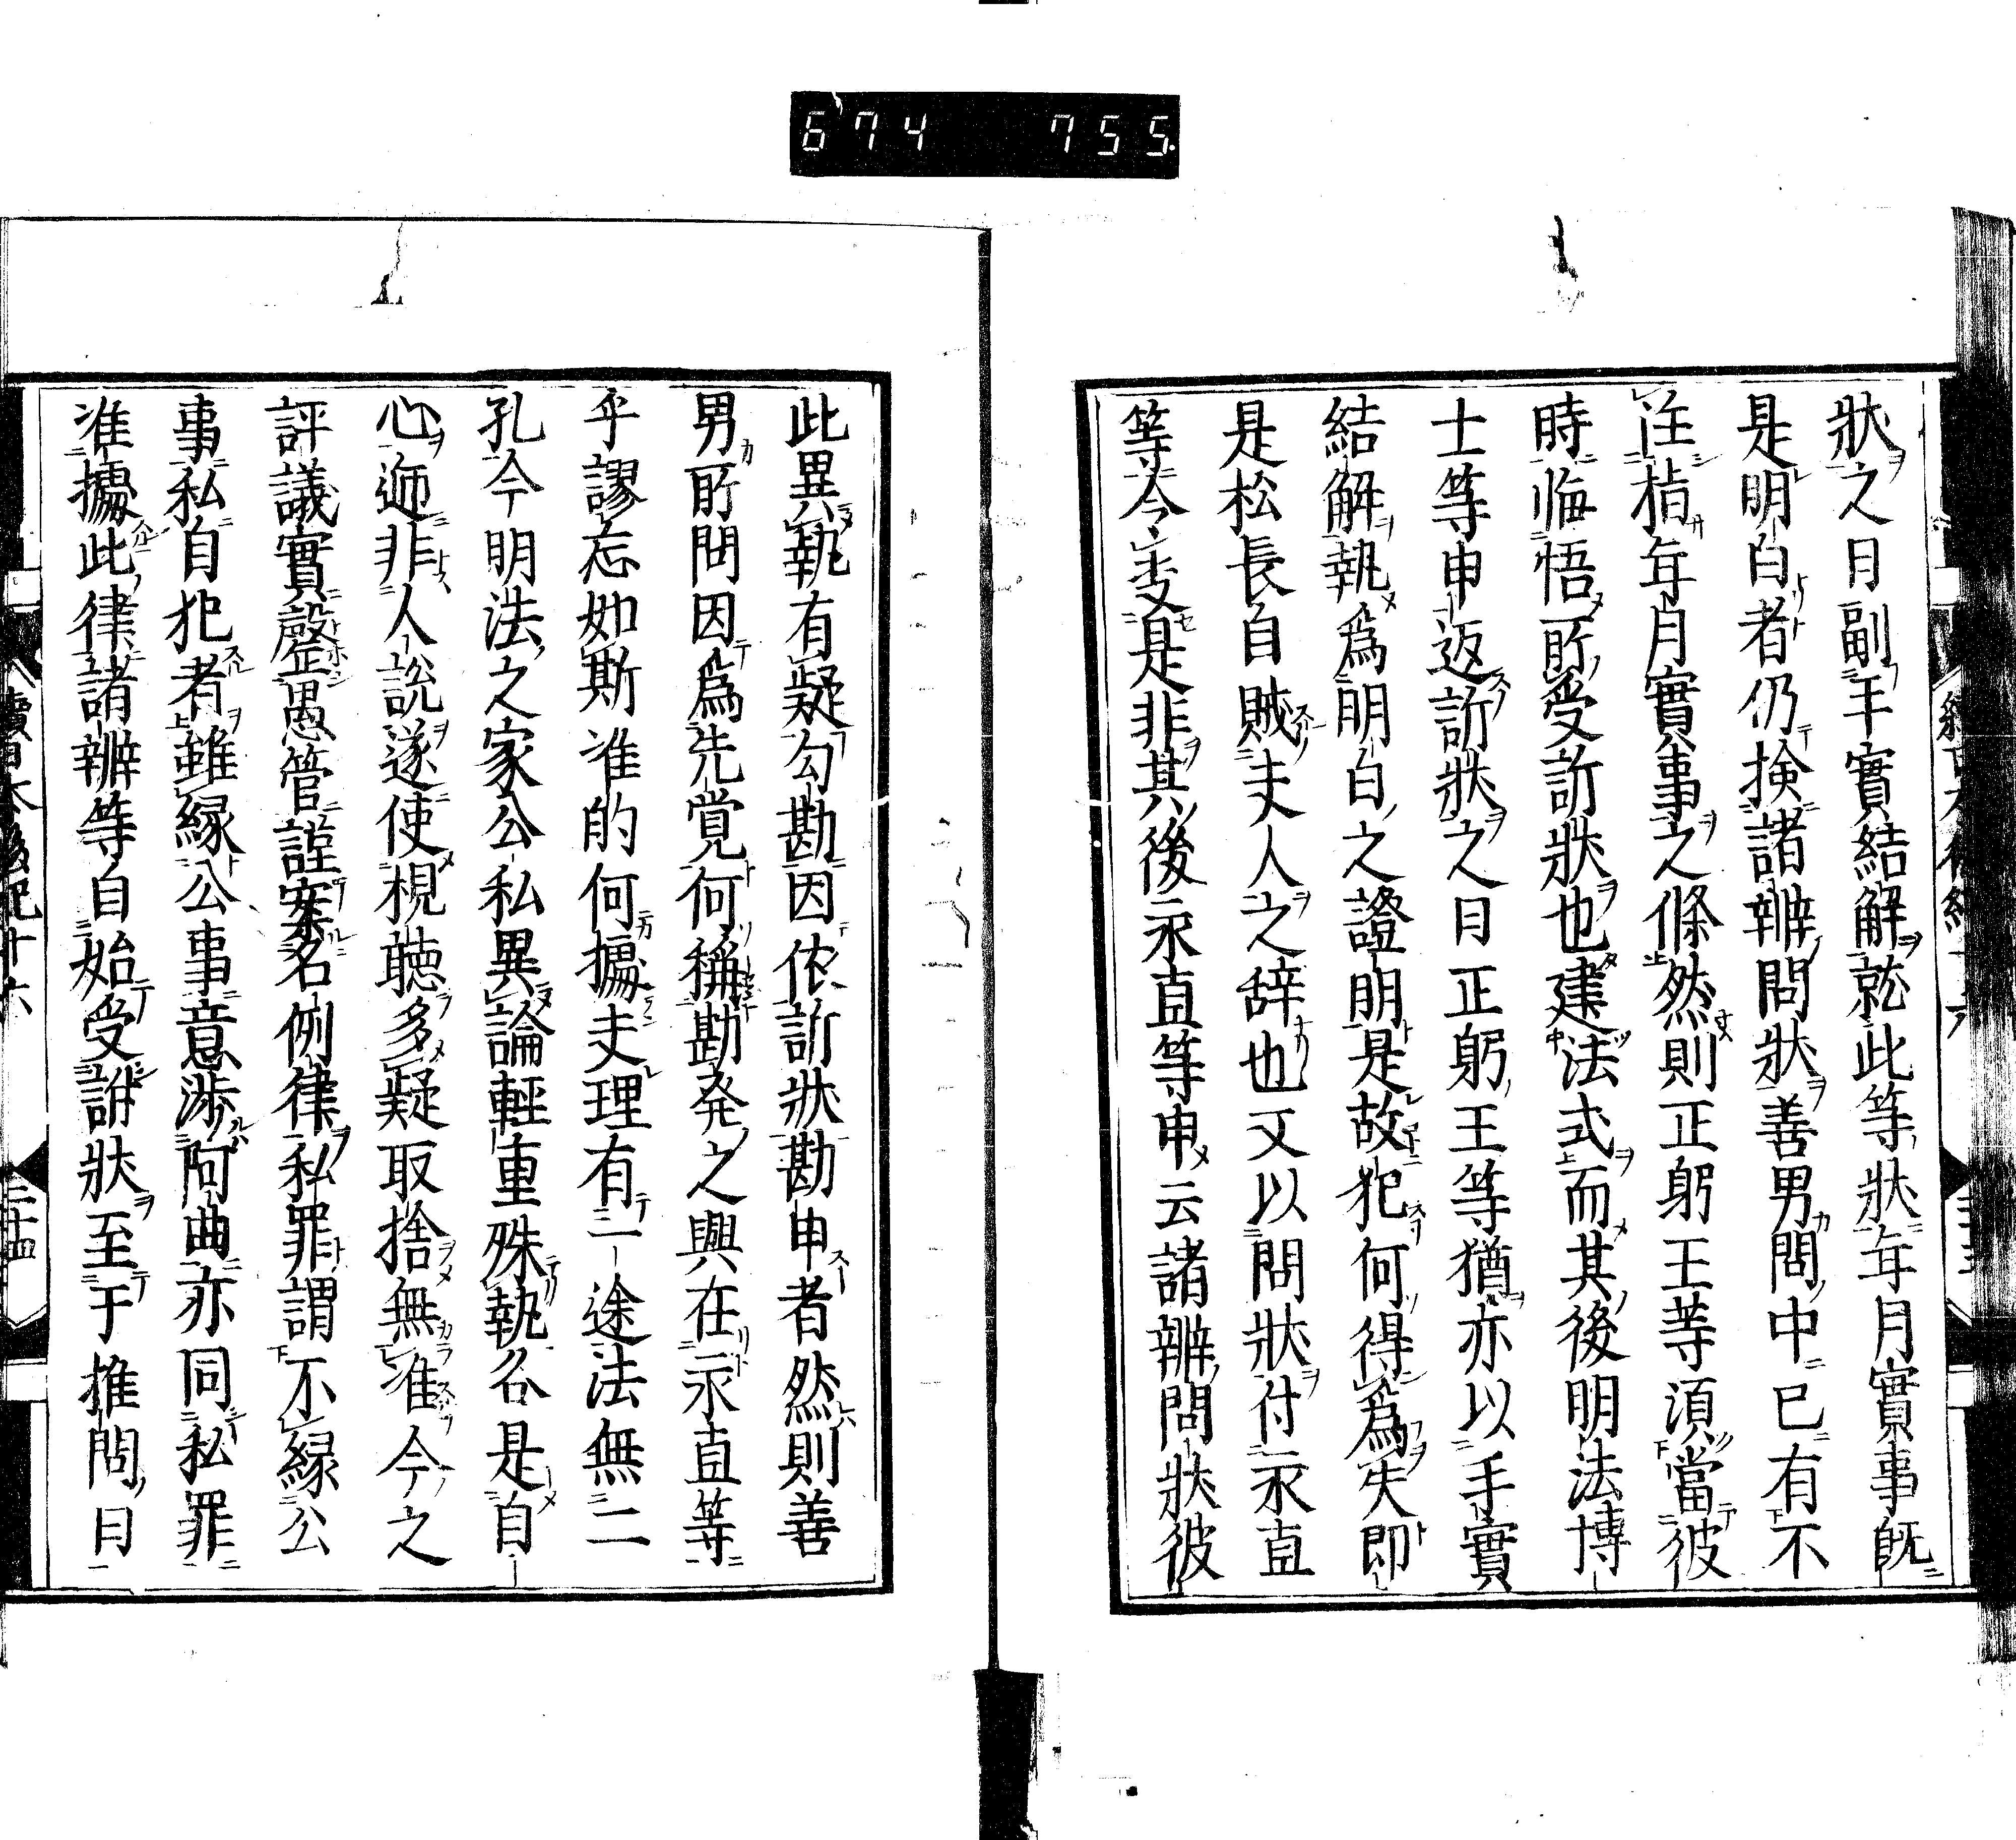 674 755
狀之日副手實結解就此等狀年月實事既
是明白者仍検諸辨問狀善男問中已有不
注指年月實事之條然則正躬王等湏當彼
時臨悟所受訴狀也建法式而其後明法博
士等申返訴狀之日正躬王等猶亦以手實
結解執爲明白之證明是故犯何得爲失即
是松長自賊夫人之辞也又以問狀付永直
等令㝎是非其後永直等申云諸辨問狀彼
此異執有疑勾勘因依訴狀勘申者然則善
男所問因爲先覚何稱勘発之興在永直等
乎謬忘如斯准的何攄夫理有一途法無二
孔今明法之家公私異論輕重殊執名是自
心迊非人説遂使視聴多疑取捨無准今之
評議實整愚管謹案名例律私罪謂不縁公
事私自犯者雖縁公事意渉阿曲亦同私罪
准攄此律諸辨等自始受訴狀至于推問日
續日本後紀十六
三十四